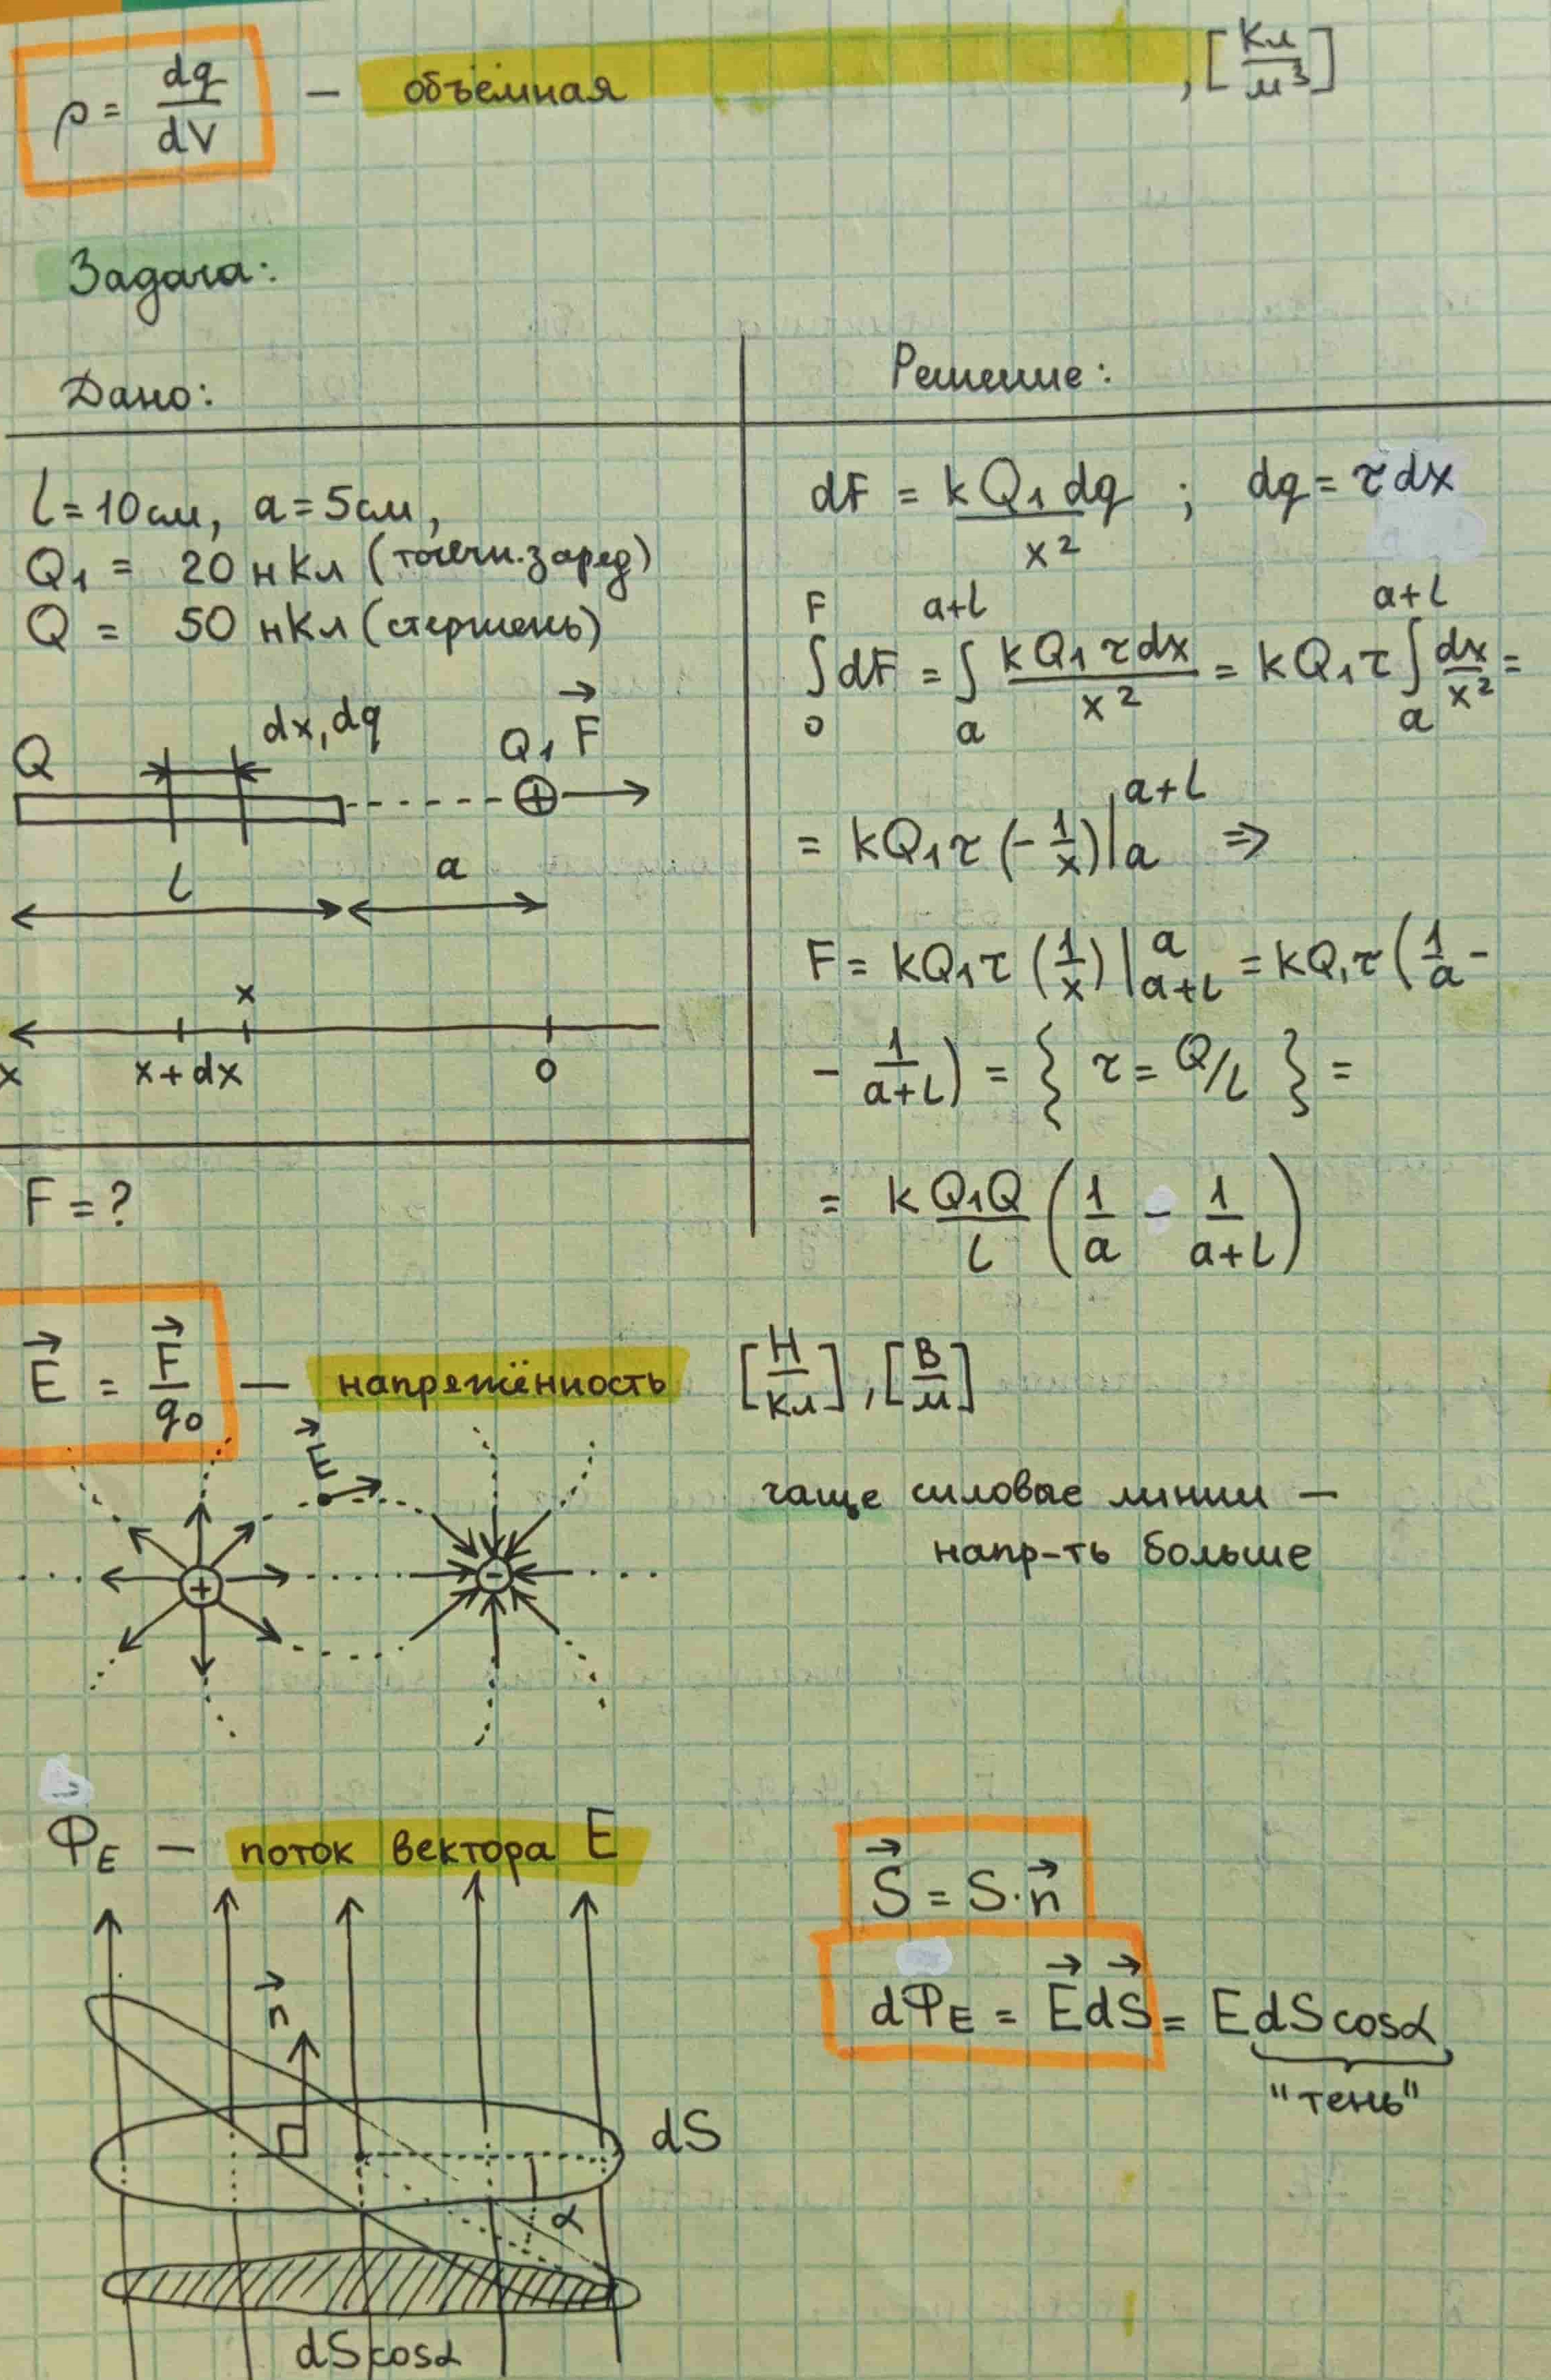 ρ = dq/dV — объёмная , [Кл/м³]
Задача:
Дано:
l = 10 см, a = 5 см,
Q₁ = 20 нКл (точечн. заряд)
Q = 50 нКл (стержень)
Q dx, dq Q₁ F⃗
l a
x
x x + dx 0
F = ?
Решение:
dF = kQ₁dq/x² ; dq = τdx
∫₀^F dF = ∫ₐ^(a+l) kQ₁τdx/x² = kQ₁τ ∫ₐ^(a+l) dx/x² =
= kQ₁τ (-1/x)|ₐ^(a+l) ⇒
F = kQ₁τ (1/x)|_(a+l)^a = kQ₁τ (1/a -
- 1/(a+l)) = { τ = Q/l } =
= k Q₁Q/l (1/a - 1/(a+l))
E⃗ = F⃗/q₀ — напряжённость [Н/Кл], [В/м]
E⃗
+ -
чаще силовые линии —
напр-ть больше
Φ_E — поток вектора E
n⃗
dS
α
dScosα
S⃗ = S·n⃗
dΦ_E = E⃗dS⃗ = EdScosα
"тень"